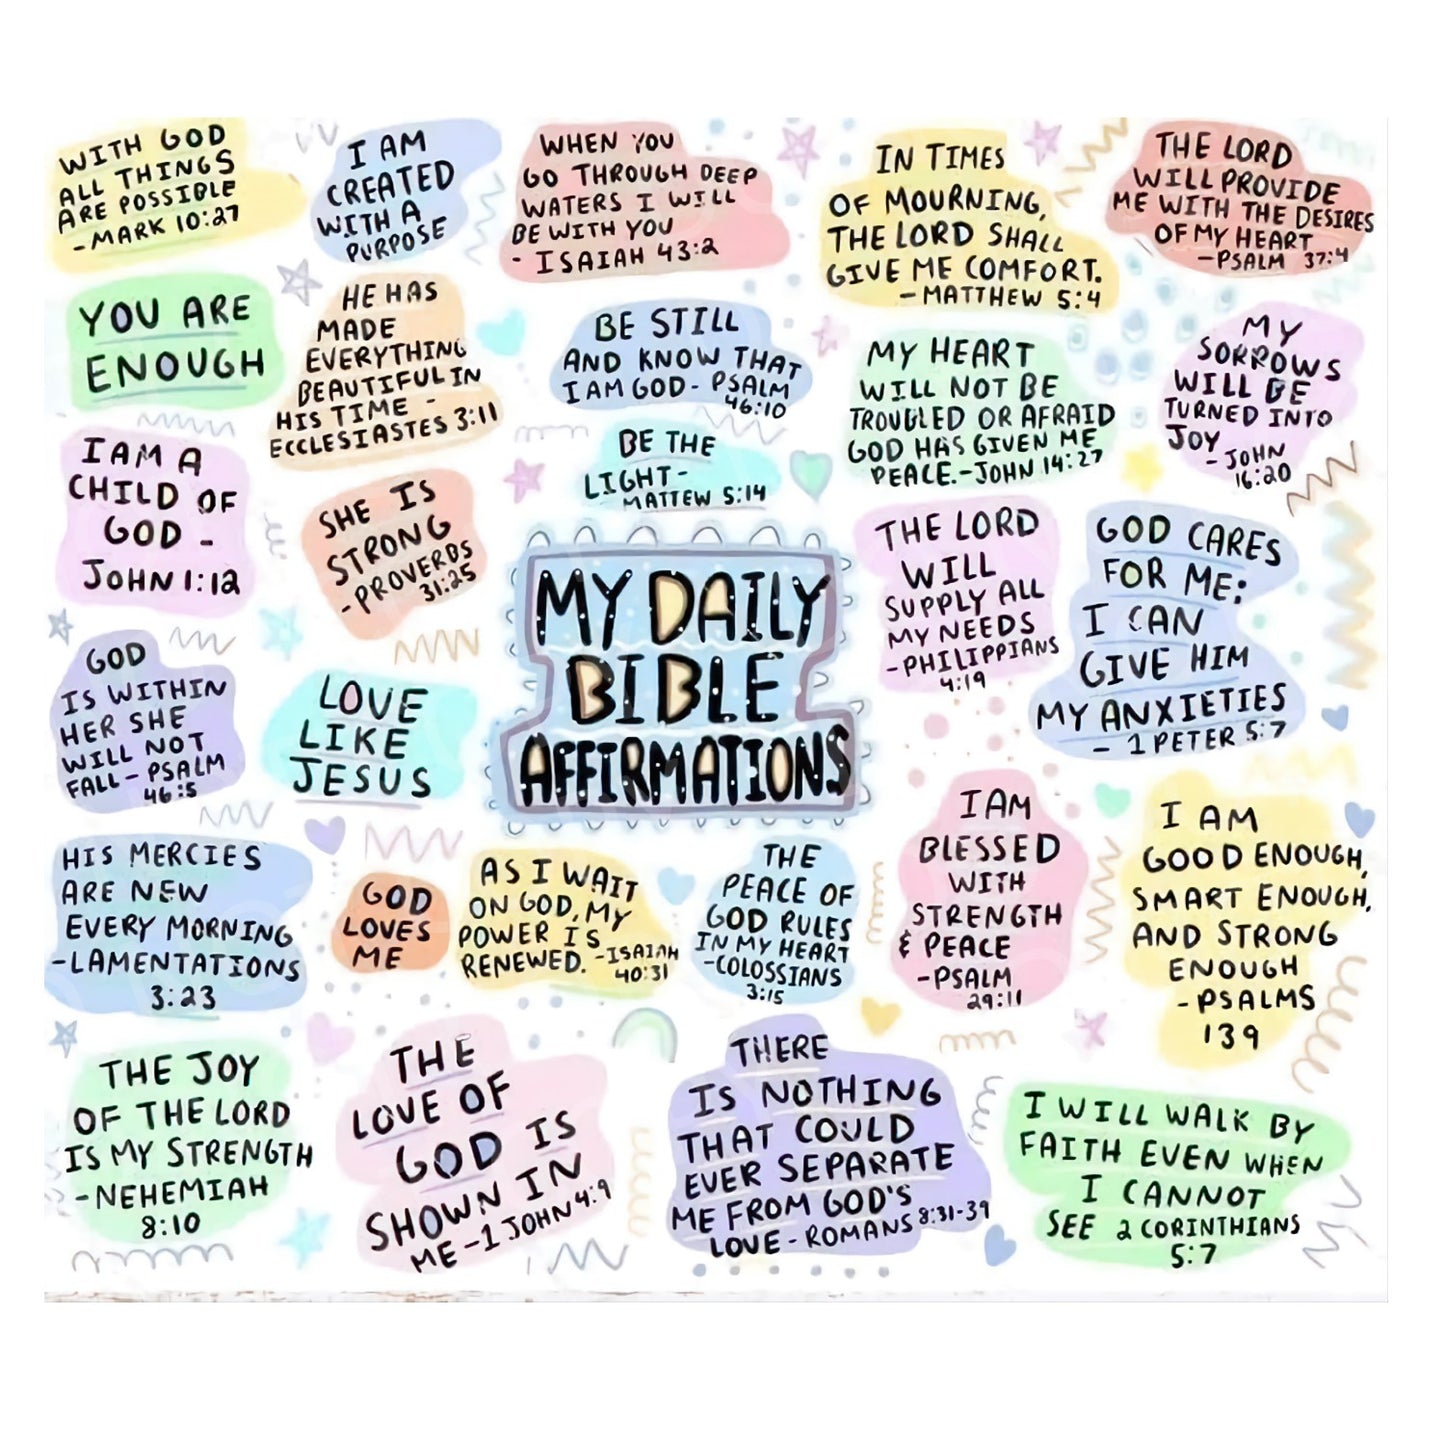 WITH GOD
ALL THINGS
ARE POSSIBLE
- MARK 10:27
I AM
CREATED
WITH A
PURPOSE
WHEN YOU
GO THROUGH DEEP
WATERS I WILL
BE WITH YOU
- ISAIAH 43:2
IN TIMES
OF MOURNING,
THE LORD SHALL
GIVE ME COMFORT.
- MATTHEW 5:4
THE LORD
WILL PROVIDE
ME WITH THE DESIRES
OF MY HEART
- PSALM 37:4
YOU ARE
ENOUGH
HE HAS
MADE
EVERYTHING
BEAUTIFUL IN
HIS TIME -
ECCLESIASTES 3:11
BE STILL
AND KNOW THAT
I AM GOD - PSALM
46:10
MY HEART
WILL NOT BE
TROUBLED OR AFRAID
GOD HAS GIVEN ME
PEACE. - JOHN 14:27
MY
SORROWS
WILL BE
TURNED INTO
JOY
- JOHN
16:20
I AM A
CHILD OF
GOD -
JOHN 1:12
SHE IS
STRONG
- PROVERBS
31:25
BE THE
LIGHT -
MATTEW 5:14
THE LORD
WILL
SUPPLY ALL
MY NEEDS
- PHILIPPIANS
4:19
GOD CARES
FOR ME:
I CAN
GIVE HIM
MY ANXIETIES
- 1 PETER 5:7
MY DAILY
BIBLE
AFFIRMATIONS
GOD
IS WITHIN
HER SHE
WILL NOT
FALL - PSALM
46:5
LOVE
LIKE
JESUS
HIS MERCIES
ARE NEW
EVERY MORNING
- LAMENTATIONS
3:23
GOD
LOVES
ME
AS I WAIT
ON GOD, MY
POWER IS
RENEWED. - ISAIAH
40:31
THE
PEACE OF
GOD RULES
IN MY HEART
- COLOSSIANS
3:15
I AM
BLESSED
WITH
STRENGTH
& PEACE
- PSALM
29:11
I AM
GOOD ENOUGH,
SMART ENOUGH,
AND STRONG
ENOUGH
- PSALMS
139
THE JOY
OF THE LORD
IS MY STRENGTH
- NEHEMIAH
8:10
THE
LOVE OF
GOD IS
SHOWN IN
ME - 1 JOHN 4:9
THERE
IS NOTHING
THAT COULD
EVER SEPARATE
ME FROM GOD'S
LOVE - ROMANS 8:31-39
I WILL WALK BY
FAITH EVEN WHEN
I CANNOT
SEE 2 CORINTHIANS
5:7